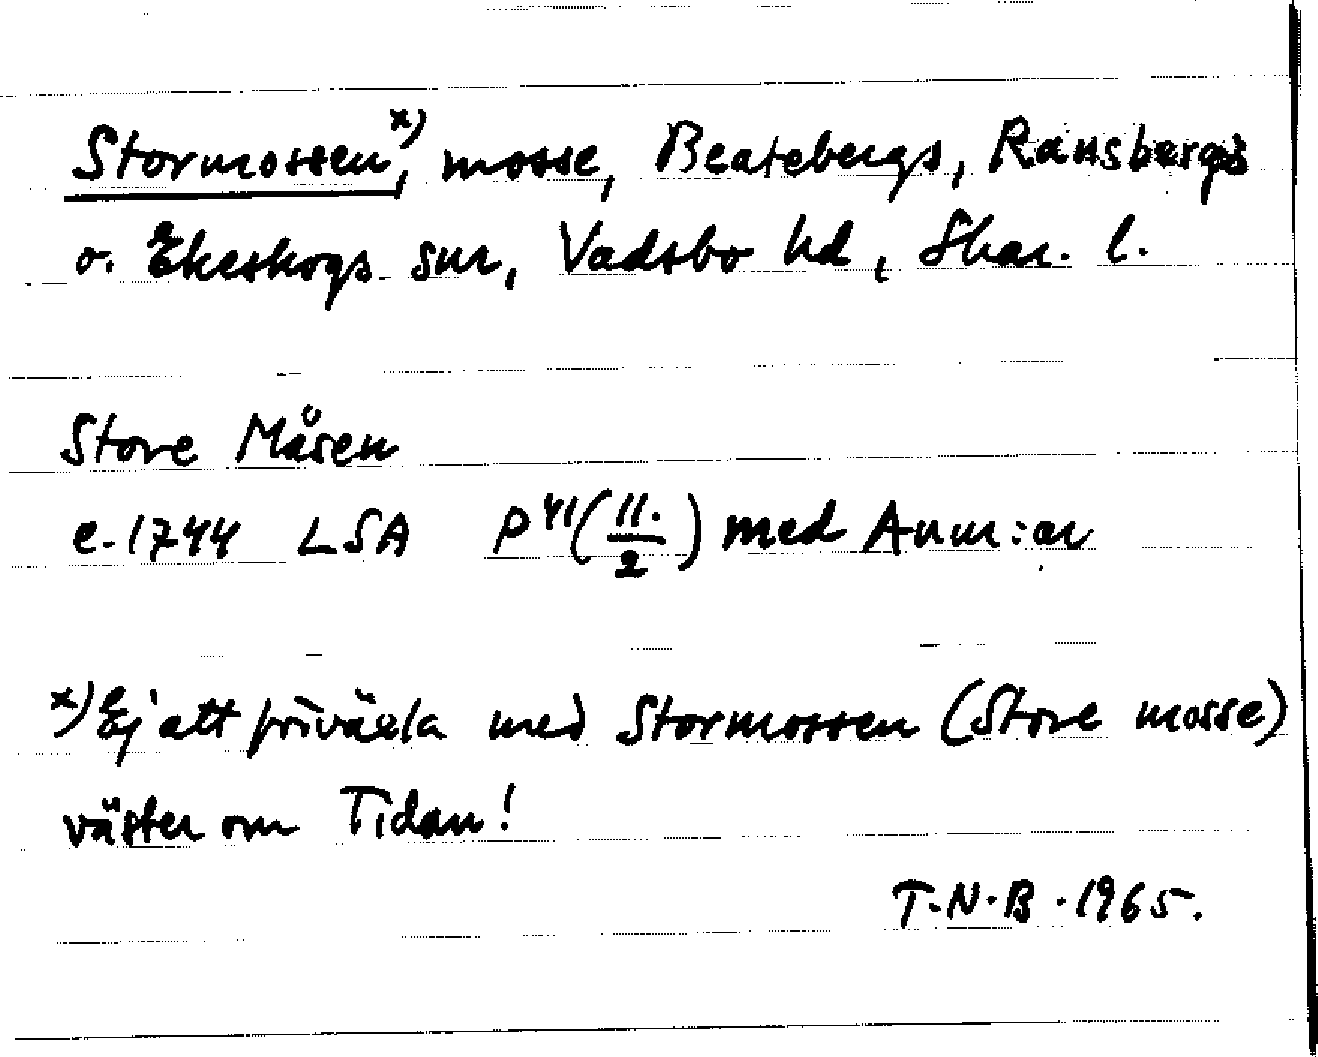 Stormossen,ˣ⁾ mosse, Beatebergs, Ransbergs
o. Ekeskogs snr, Vadsbo hd, Skar. l.
Store Måsen
e. 1744 LSA P 41 (11./2) med Anm:ar
x) Ej att förväxla med Stormossen (Store mosse)
väster om Tidan!
T.N.B. 1965.